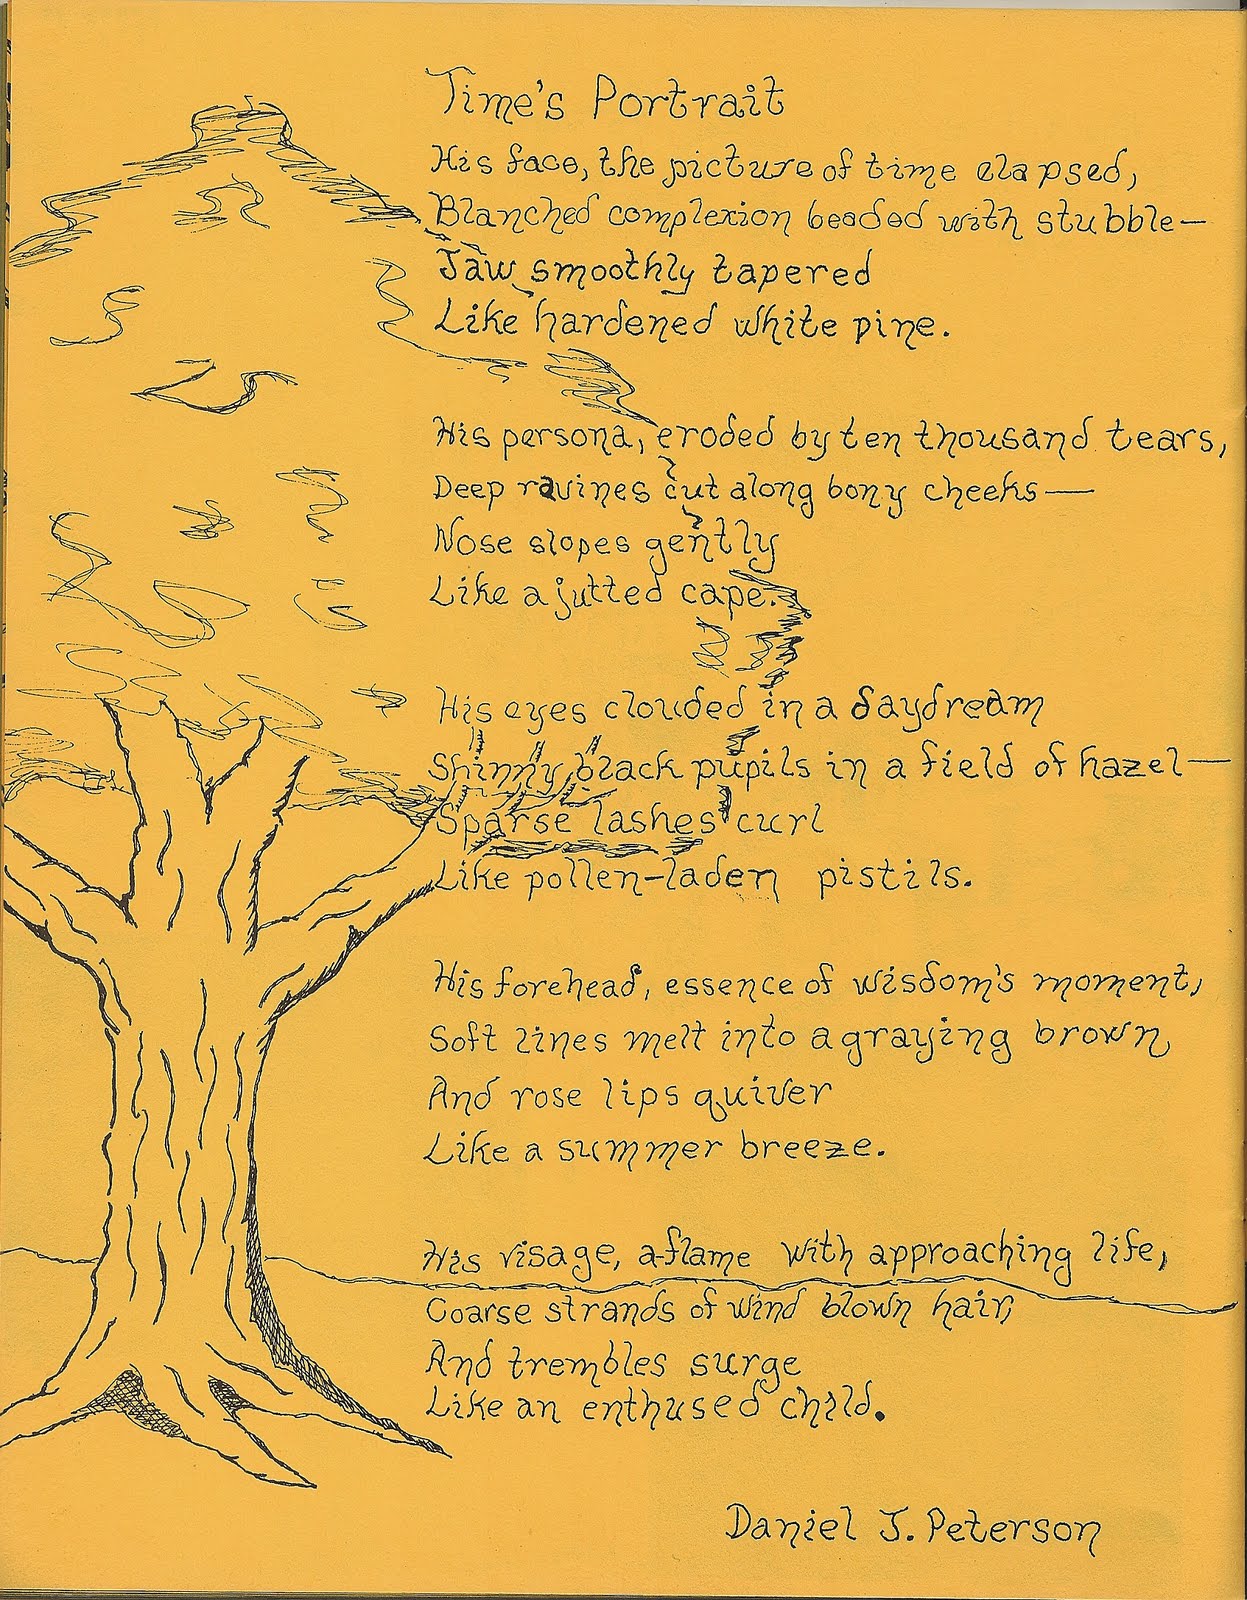 Time's Portrait
His face, the picture of time elapsed,
Blanched complexion beaded with stubble—
Jaw smoothly tapered
Like hardened white pine.
His persona, eroded by ten thousand tears,
Deep ravines cut along bony cheeks—
Nose slopes gently
Like a jutted cape.
His eyes clouded in a daydream
Shinny black pupils in a field of hazel—
Sparse lashes curl
Like pollen-laden pistils.
His forehead, essence of wisdom's moment,
Soft lines melt into a graying brown
And rose lips quiver
Like a summer breeze.
His visage, a-flame with approaching life,
Coarse strands of wind blown hair,
And trembles surge
Like an enthused child.
Daniel J. Peterson